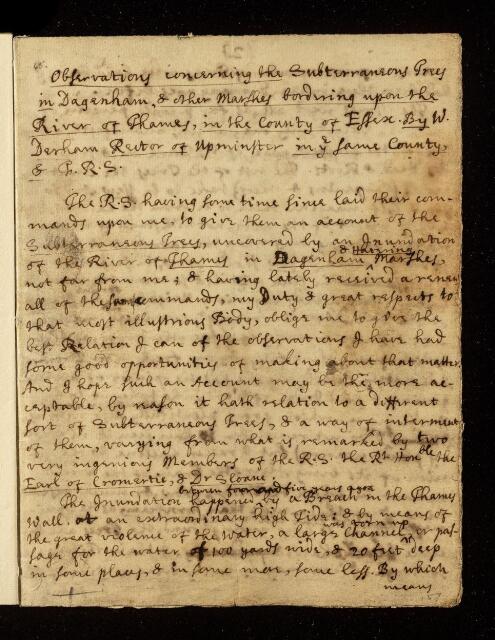 Observations concerning the Subterraneous Trees
in Dagenham, & other Marshes bordering upon the
River of Thames, in the County of Essex. By W.
Derham Rector of Upminster in yͤ same County,
& F.R.S.
The R.S. having some time since laid their com-
mands upon me, to give them an account of the
Subterraneous Trees, uncovered by an Inundation
& Havering
of the River of Thames in Dagenham Marshes,
not far from me; & having lately received a renew
all of the commands, my Duty & great respects to
that most illustrious Body, oblige me to give the
best Relation I can of the observations I have had
some good opportunities of making about that matter.
And I hope such an Account may be the more ac-
ceptable, by reason it hath relation to a different
sort of Subterraneous Trees, & a way of interment
of them, varying from what is remarked by two
very ingenious Members of the R.S. the Rt Honble the
Earl of Cromertie, & Dr Sloane
between four and five years agoe
The Inundation happened by a Breach in the Thames
Wall, at an extraordinary high Tide; & by means of
was torn up
the great violence of the water, a large Channel or pas-
sage for the water of 100 yards wide, & 20 feet deep
in some places, & in some more, some less. By which
means